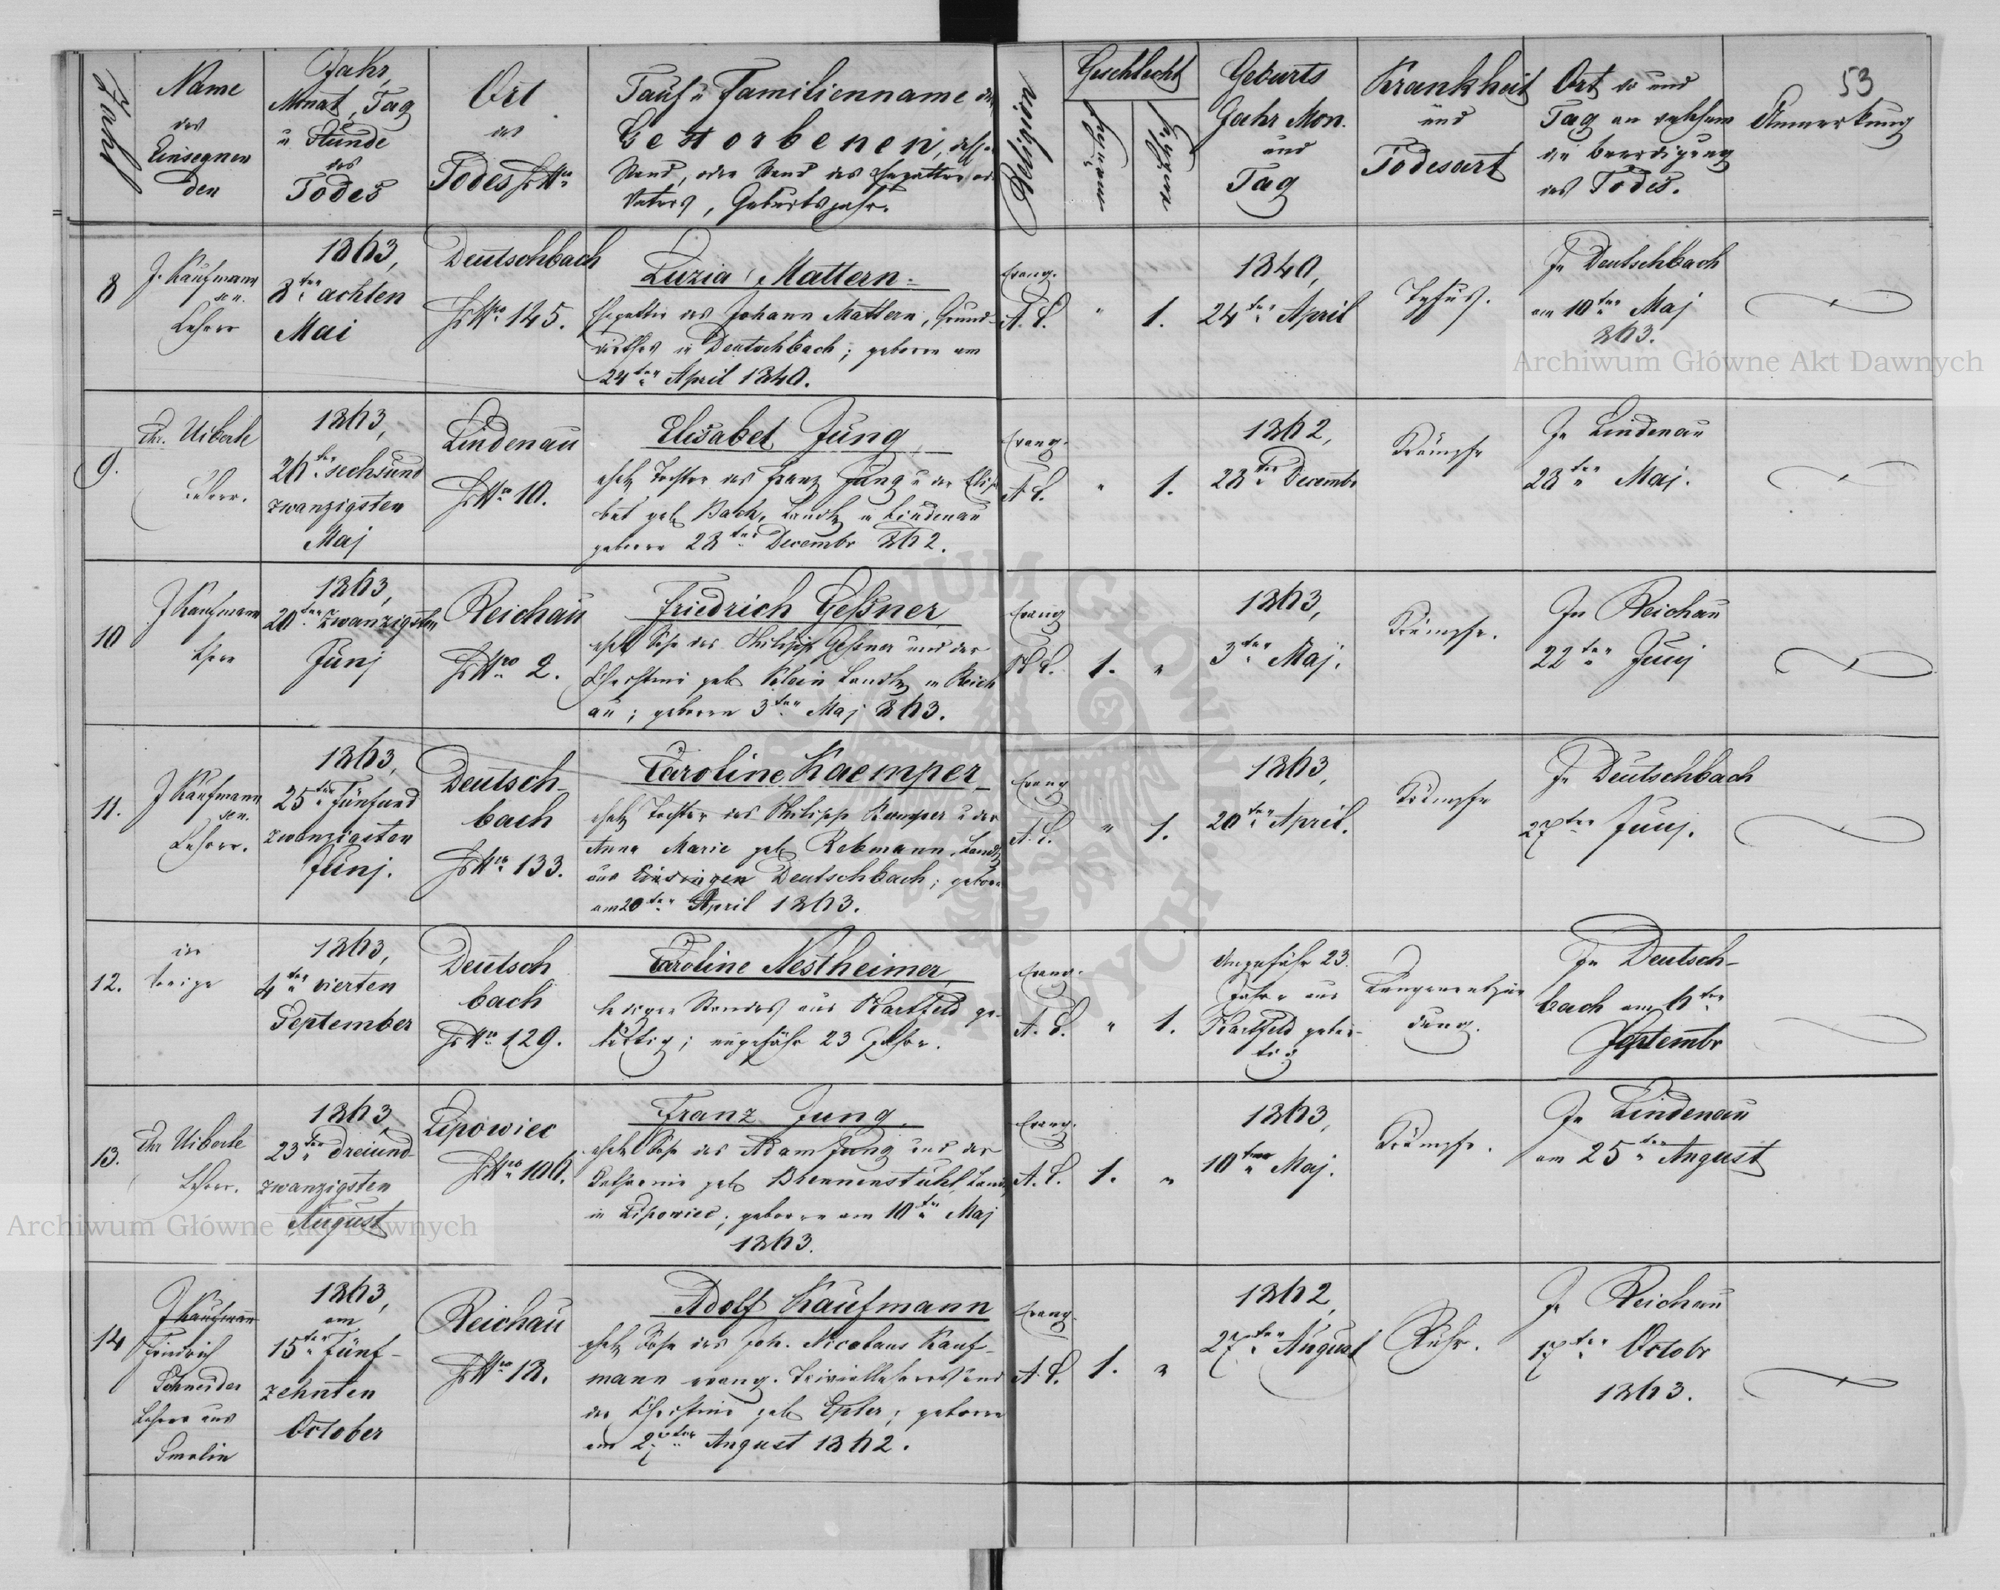 53
Zahl
Name
des
Einsegnen
den
Jahr,
Monat, Tag
u Stunde
des
Todes
Ort
des
Todes HsNro
Tauf u Familienname des
Gestorbenen, dessen
Stand, oder Stand des Ehegatten od
Vaters, Geburtsjahr.
Religion
Geschlecht
männlich
weiblich
Geburts
Jahr Mon.
und
Tag
Krankheit
und
Todesart
Ort wo und
Tag an welchem
die Beerdigung
des Todes.
Anmerkung
8
J. Kaufmann
sen.
Lehrer
1863,
8ten achten
Mai
Deutschbach
HsNro 145.
Luzia Mattern
Ehegattin des Johann Mattern, Grund-
wirthes in Deutschbach; geboren am
24ten April 1840.
Evang.
A. C.
"
1.
1840,
24ten April
Tyfus.
In Deutschbach
am 10ten Maj
863.
9.
Chr. Uiberle
Lehrer.
1863,
26ten sechsund
zwanzigsten
Maj
Lindenau
HsNro 10.
Elisabet Jung
ehel Tochter des Franz Jung u der Elisa
bet geb Bach, Landw in Lindenau
geboren 28ten Decembr 862.
Evang.
A C.
"
1.
1862,
28ten Decembr
Krämpfe
In Lindenau
28ten Maj.
10
J Kaufmann
Lehrer
1863,
20ten zwanzigsten
Junj
Reichau
HsNro 2.
Friedrich Geßner
ehel Sohn des Philipp Geßner und der
Christine geb Klein Landw in Reich
au; geboren 3ten Maj 863.
Evang
A C.
1.
"
1863,
3ten Maj.
Krämpfe.
In Reichau
22ten Junj
11.
J Kaufmann
sen.
Lehrer.
1863,
25ten fünfund
zwanzigsten
Junj.
Deutsch-
bach
HsNro 133.
Caroline Kaemper
ehel Tochter des Philipp Kemper u der
Anna Marie geb Rebmann, Landw
aus Deutschbach; geboren
am 20ten April 1863.
Evang
A. C.
"
1.
1863,
20ten April.
Krämpfe
In Deutschbach
27ten Junj.
12.
der
vorige
1863,
4ten vierten
September
Deutsch
bach
HsNro 129.
Caroline Nestheimer,
lediger Standes aus Bartfeld ge-
bürtig; ungefähr 23 Jahre.
Evang.
A. C.
"
1.
Ungefähr 23
Jahre aus
Bartfeld gebür-
tig
Lungenentzün
dung.
In Deutsch-
bach am 6ten
Septembr
13.
Chr Uiberle
Lehrer.
1863,
23ten dreiund-
zwanzigsten
August
Lipowiec
HsNro 100.
Franz Jung.
ehel Sohn des Adam Jung und der
Catharina geb Brennenstuhl, Landw
in Lipowiec; geboren am 10ten Maj
1863.
Evang.
A. C.
1.
"
1863,
10ten Maj.
Krämpfe.
In Lindenau
am 25ten August
14
J Kaufmann
Friedrich
Schneider
Lehrer aus
Smolin
1863,
am
15ten fünf-
zehnten
October
Reichau
HsNro 18.
Adolf Kaufmann
ehel Sohn des Joh. Nicolaus Kauf-
mann evang. Triviallehrers und
der Christine geb Epler; geboren
am 27ten August 1862.
Evang
A. C.
1.
"
1862,
27ten August
Ruhr.
In Reichau
17ten Octobr
1863.
Archiwum Główne Akt Dawnych
Archiwum Główne Akt Dawnych